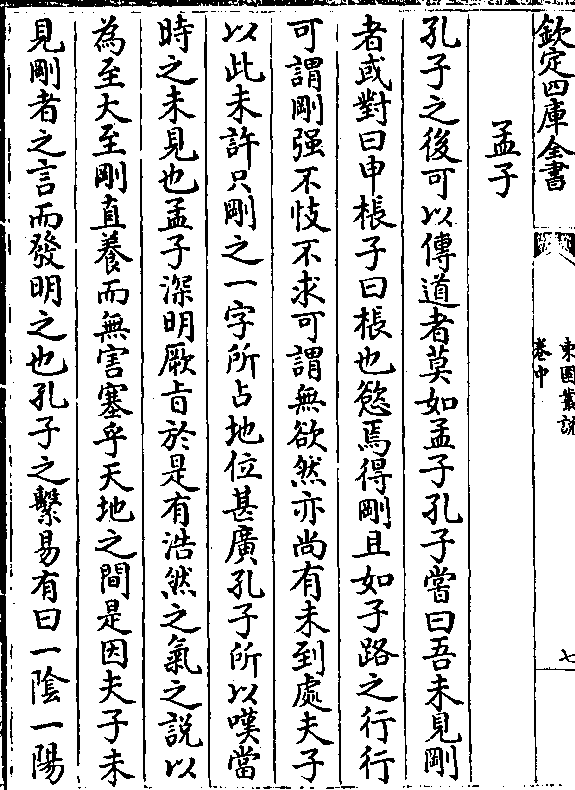 欽定四庫全書
東園叢說
卷中
七
孟子
孔子之後可以傳道者莫如孟子孔子嘗曰吾未見剛
者或對曰申棖子曰棖也慾焉得剛且如子路之行行
可謂剛强不忮不求可謂無欲然亦尚有未到處夫子
以此未許只剛之一字所占地位甚廣孔子所以嘆當
時之未見也孟子深明厥旨於是有浩然之氣之説以
為至大至剛直養而無害塞乎天地之間是因夫子未
見剛者之言而發明之也孔子之繫易有曰一陰一陽